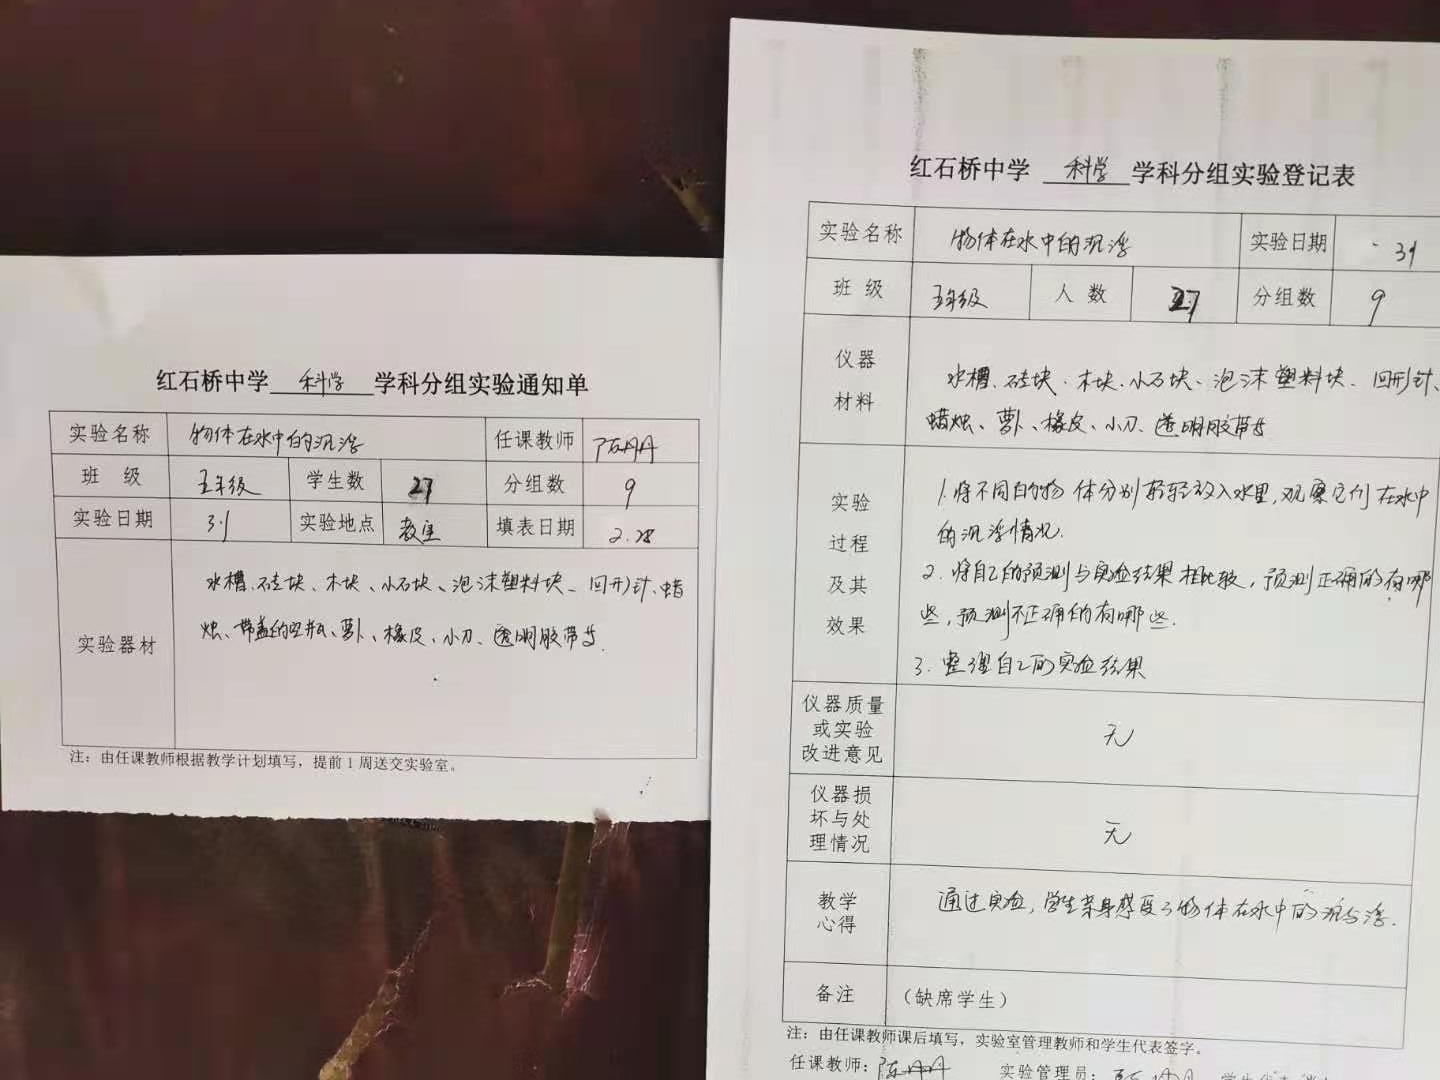 红石桥中学 科学 学科分组实验通知单
实验名称 物体在水中的沉浮 任课教师 陈丹丹
班 级 五年级 学生数 27 分组数 9
实验日期 3.1 实验地点 教室 填表日期 2.28
实验器材
水槽、砖块、木块、小石块、泡沫塑料块、回形针、蜡
烛、带盖的空瓶、萝卜、橡皮、小刀、透明胶带等.
注：由任课教师根据教学计划填写，提前1周送交实验室。
红石桥中学 科学 学科分组实验登记表
实验名称 物体在水中的沉浮 实验日期 31
班 级 五年级 人 数 27 分组数 9
仪器
材料
水槽、砖块、木块、小石块、泡沫塑料块、回形针、
蜡烛、萝卜、橡皮、小刀、透明胶带等
实验
过程
及其
效果
1.将不同的物体分别轻轻放入水里,观察它们在水中
的沉浮情况.
2.将自己的预测与实验结果相比较,预测正确的有哪
些,预测不正确的有哪些.
3.整理自己的实验结果
仪器质量
或实验
改进意见
无
仪器损
坏与处
理情况
无
教学
心得
通过实验,学生亲身感受了物体在水中的沉与浮.
备注 （缺席学生）
注：由任课教师课后填写，实验室管理教师和学生代表签字。
任课教师：陈丹丹 实验管理员：